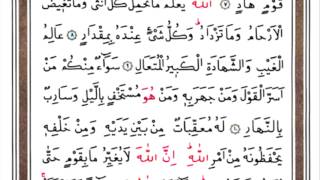 قَوْمٍ هَادٍ ٧ ٱللَّهُ يَعْلَمُ مَا تَحْمِلُ كُلُّ أُنثَىٰ وَمَا تَغِيضُ
ٱلْأَرْحَامُ وَمَا تَزْدَادُ وَكُلُّ شَىْءٍ عِندَهُۥ بِمِقْدَارٍ ٨ عَٰلِمُ
ٱلْغَيْبِ وَٱلشَّهَٰدَةِ ٱلْكَبِيرُ ٱلْمُتَعَالِ ٩ سَوَآءٌ مِّنكُم مَّنْ
أَسَرَّ ٱلْقَوْلَ وَمَن جَهَرَ بِهِۦ وَمَنْ هُوَ مُسْتَخْفٍۭ بِٱلَّيْلِ وَسَارِبٌۢ
بِٱلنَّهَارِ ١٠ لَهُۥ مُعَقِّبَٰتٌ مِّنۢ بَيْنِ يَدَيْهِ وَمِنْ خَلْفِهِۦ
يَحْفَظُونَهُۥ مِنْ أَمْرِ ٱللَّهِ إِنَّ ٱللَّهَ لَا يُغَيِّرُ مَا بِقَوْمٍ حَتَّىٰ